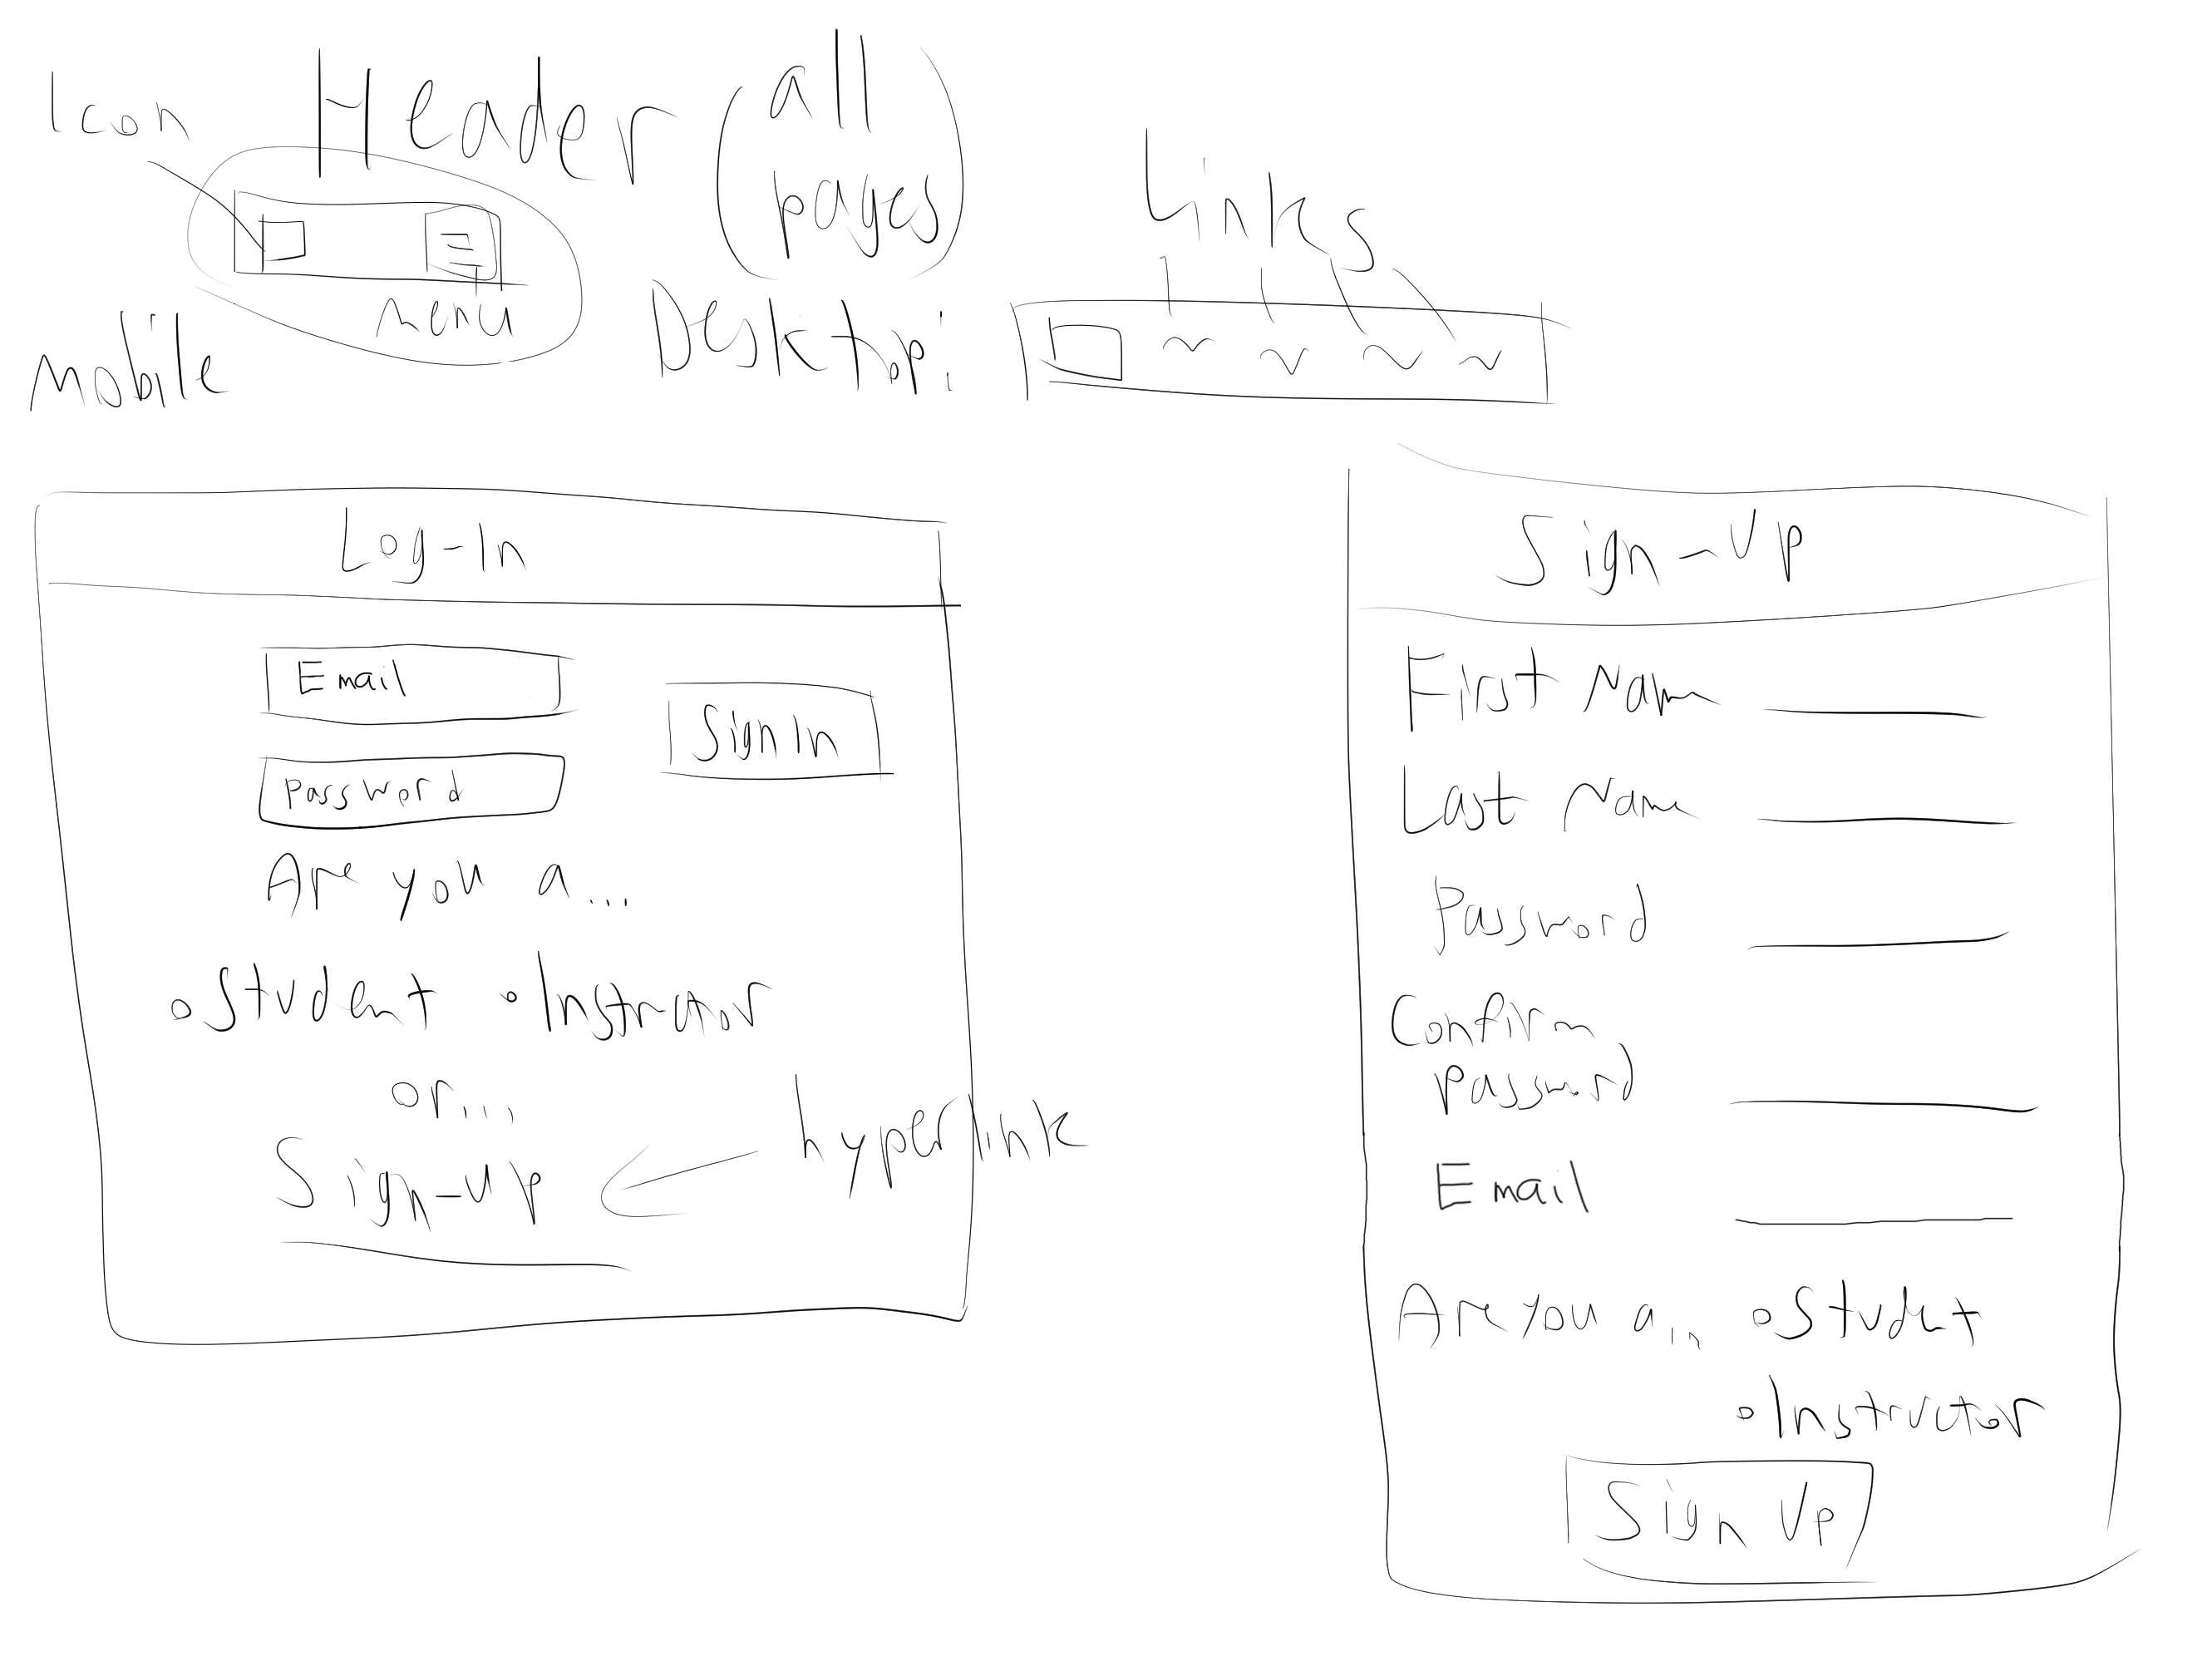 Icon
Header (all pages)
Menu
Mobile
Desktop:
Links
Log-In
Email
Password
Sign In
Are you a...
Student Instructor
or...
Sign-Up
hyperlink
Sign-Up
First Name
Last Name
Password
Confirm
Password
Email
Are you a... Student
Instructor
Sign Up